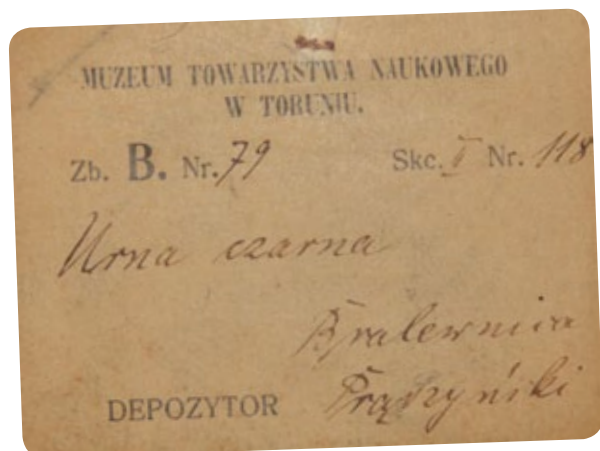 MUZEUM TOWARZYSTWA NAUKOWEGO
W TORUNIU.
Zb. B. Nr. 79 Skc. I Nr. 118
Urna czarna
Bralewnica
DEPOZYTOR Prądzyński